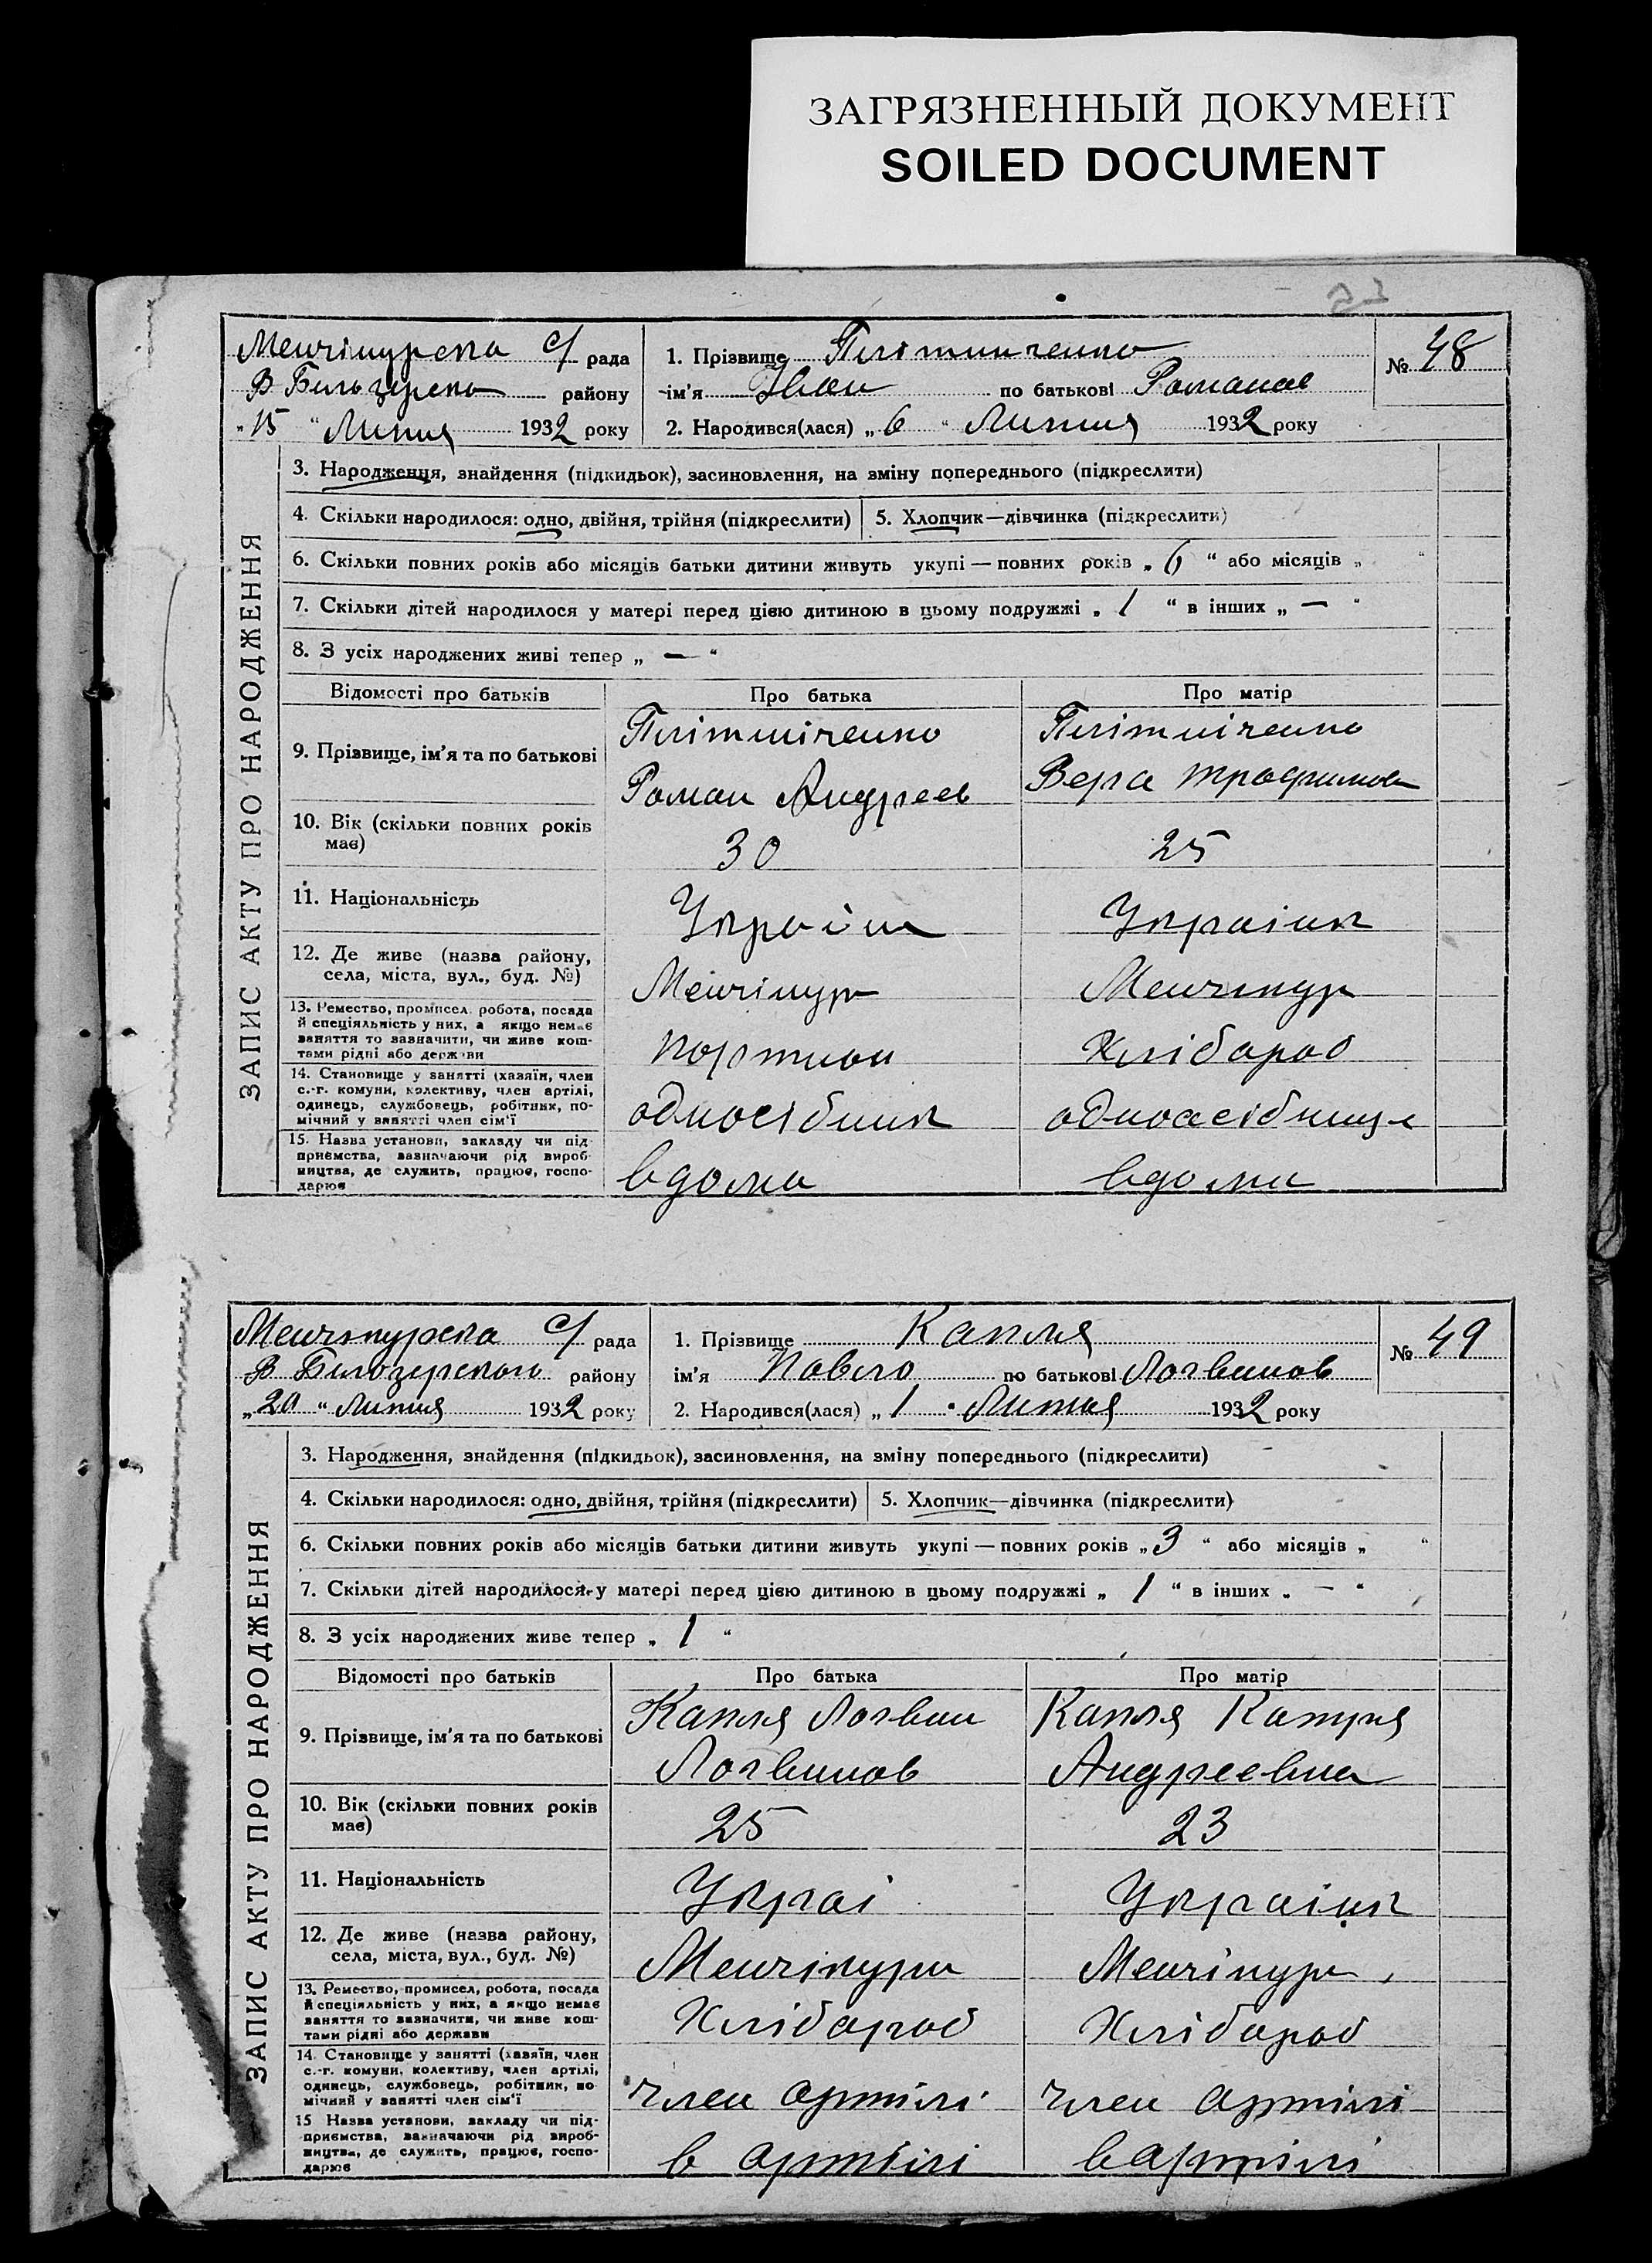 ЗАГРЯЗНЕННЫЙ ДОКУМЕНТ
SOILED DOCUMENT
Менчікурська С/ рада
В Білозерськ району
"15" Липня 1932 року
1. Прізвище Плітниченко
ім'я Іван по батькові Романов
2. Народився(лася) „ 6 " Липня 1932 року
№ 48
ЗАПИС АКТУ ПРО НАРОДЖЕННЯ
3. Народження, знайдення (підкидьок), засиновлення, на зміну попереднього (підкреслити)
4. Скільки народилося: одно, двійня, трійня (підкреслити) 5. Хлопчик—дівчинка (підкреслити)
6. Скільки повних років або місяців батьки дитини живуть укупі — повних років „ 6 " або місяців „ "
7. Скільки дітей народилося у матері перед цією дитиною в цьому подружжі „ 1 " в інших „ — "
8. З усіх народжених живі тепер „ — "
Відомості про батьків Про батька Про матір
9. Прізвище, ім'я та по батькові
Плітніченко
Роман Андреев
Плітніченко
Вера Трофимов
10. Вік (скільки повних років має)
30 25
11. Національність
Україн Українк
12. Де живе (назва району,
села, міста, вул., буд. №)
Менчікур Менчикур
13. Ремество, промисел, робота, посада
й спеціяльність у них, а якщо немає
заняття то зазначити, чи живе кош-
тами рідні або держави
портной Хлібороб
14. Становище у занятті (хазяїн, член
с.-г. комуни, колективу, член артілі,
одинець, службовець, робітник, по-
мічний у занятті член сім'ї
односібник одноосібниця
15. Назва установи, закладу чи під-
приємства, зазначаючи рід вироб-
ництва, де служить, працює, госпо-
дарює
вдома вдома
Менчикурска С/ рада
В Білозерского району
„ 20 " Липня 1932 року
1. Прізвище Капля
ім'я Павло по батькові Логвинов
2. Народився(лася) „ 1 " Липня 1932 року
№ 49
ЗАПИС АКТУ ПРО НАРОДЖЕННЯ
3. Народження, знайдення (підкидьок), засиновлення, на зміну попереднього (підкреслити)
4. Скільки народилося: одно, двійня, трійня (підкреслити) 5. Хлопчик—дівчинка (підкреслити)
6. Скільки повних років або місяців батьки дитини живуть укупі — повних років „ 3 " або місяців „ "
7. Скільки дітей народилося у матері перед цією дитиною в цьому подружжі „ 1 " в інших „ — "
8. З усіх народжених живе тепер „ 1 "
Відомості про батьків Про батька Про матір
9. Прізвище, ім'я та по батькові
Капля Логвин
Логвинов
Капля Катря
Андреевна
10. Вік (скільки повних років має)
25 23
11. Національність
Украі Українк
12. Де живе (назва району,
села, міста, вул., буд. №)
Менчікури Менчікур
13. Ремество, промисел, робота, посада
й спеціяльність у них, а якщо немає
заняття то зазначити, чи живе кош-
тами рідні або держави
Хлібороб Хлібороб
14. Становище у занятті (хазяїн, член
с.-г. комуни, колективу, член артілі,
одинець, службовець, робітник, по-
мічний у занятті член сім'ї
член артілі член артілі
15 Назва установи, закладу чи під-
приємства, зазначаючи рід вироб-
ництва, де служить, працює, госпо-
дарює
в артілі в артілі